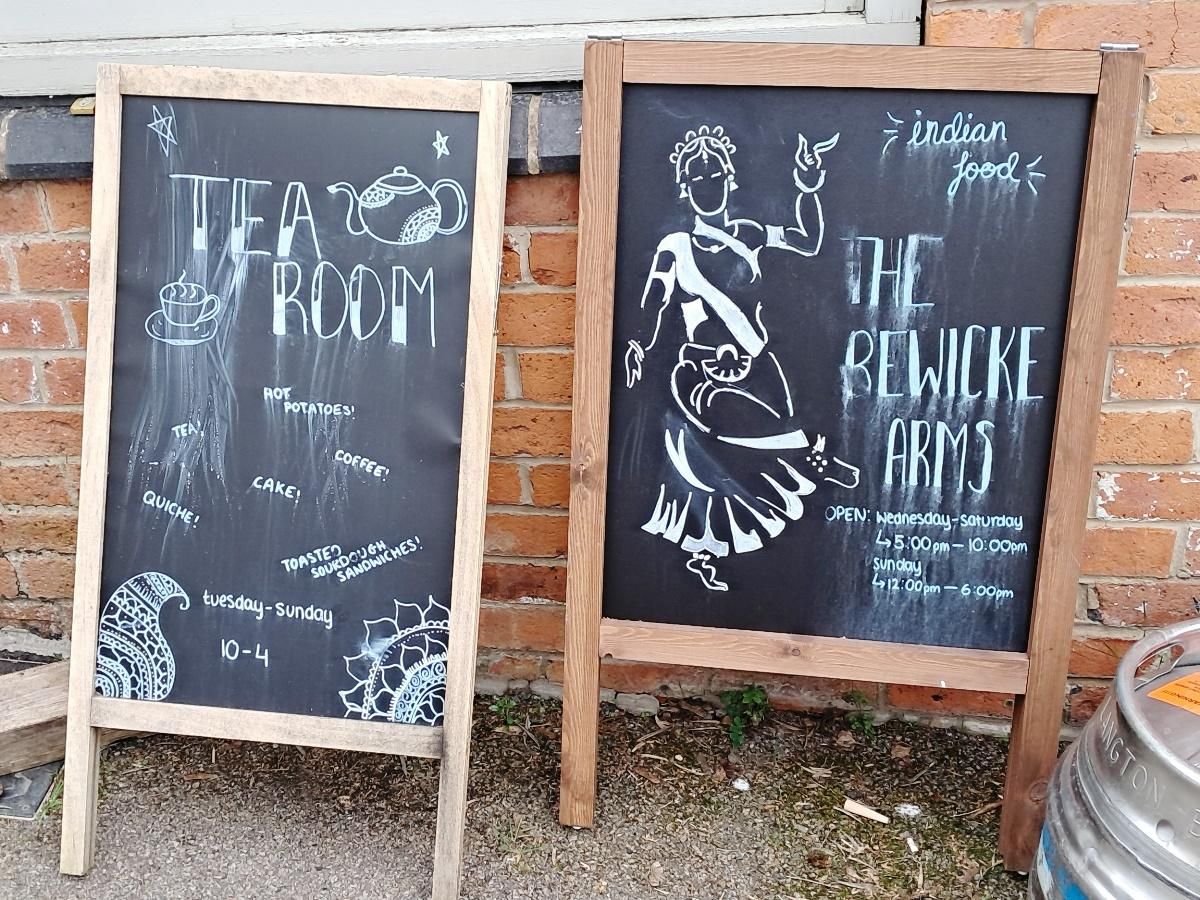 TEA
ROOM
HOT
POTATOES!
TEA!
COFFEE!
CAKE!
QUICHE!
TOASTED
SOURDOUGH
SANDWICHES!
tuesday-sunday
10-4
indian
food
THE
BEWICKE
ARMS
OPEN: wednesday-saturday
↳5:00pm - 10:00pm
sunday
↳12:00pm - 6:00pm